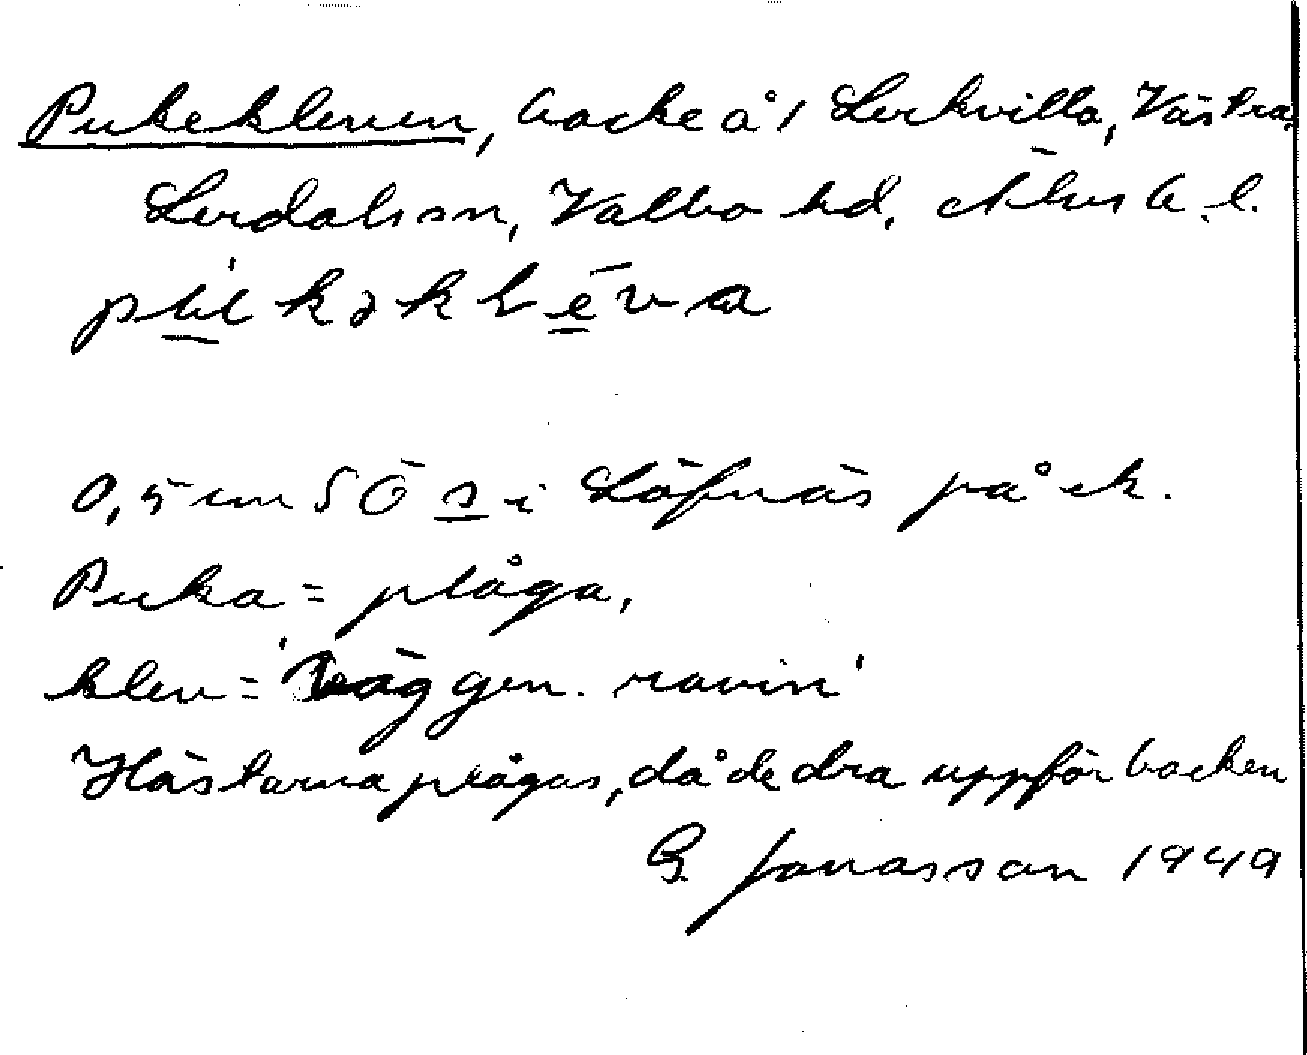 Pukekleven, backe å 1 Lerkvilla, Västra
Lerdalssn, Valbo hd, Älvsb. l.
pu̲kəkle̲va
0,5 mm SÖ s i Löfnäs på ek.
Puka = plåga,
klev = 'väg gen. ravin'
Hästarna plågas, då de dra uppför backen
G. Jonasson 1949